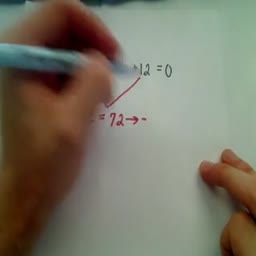 +12 = 0
= 72 → -